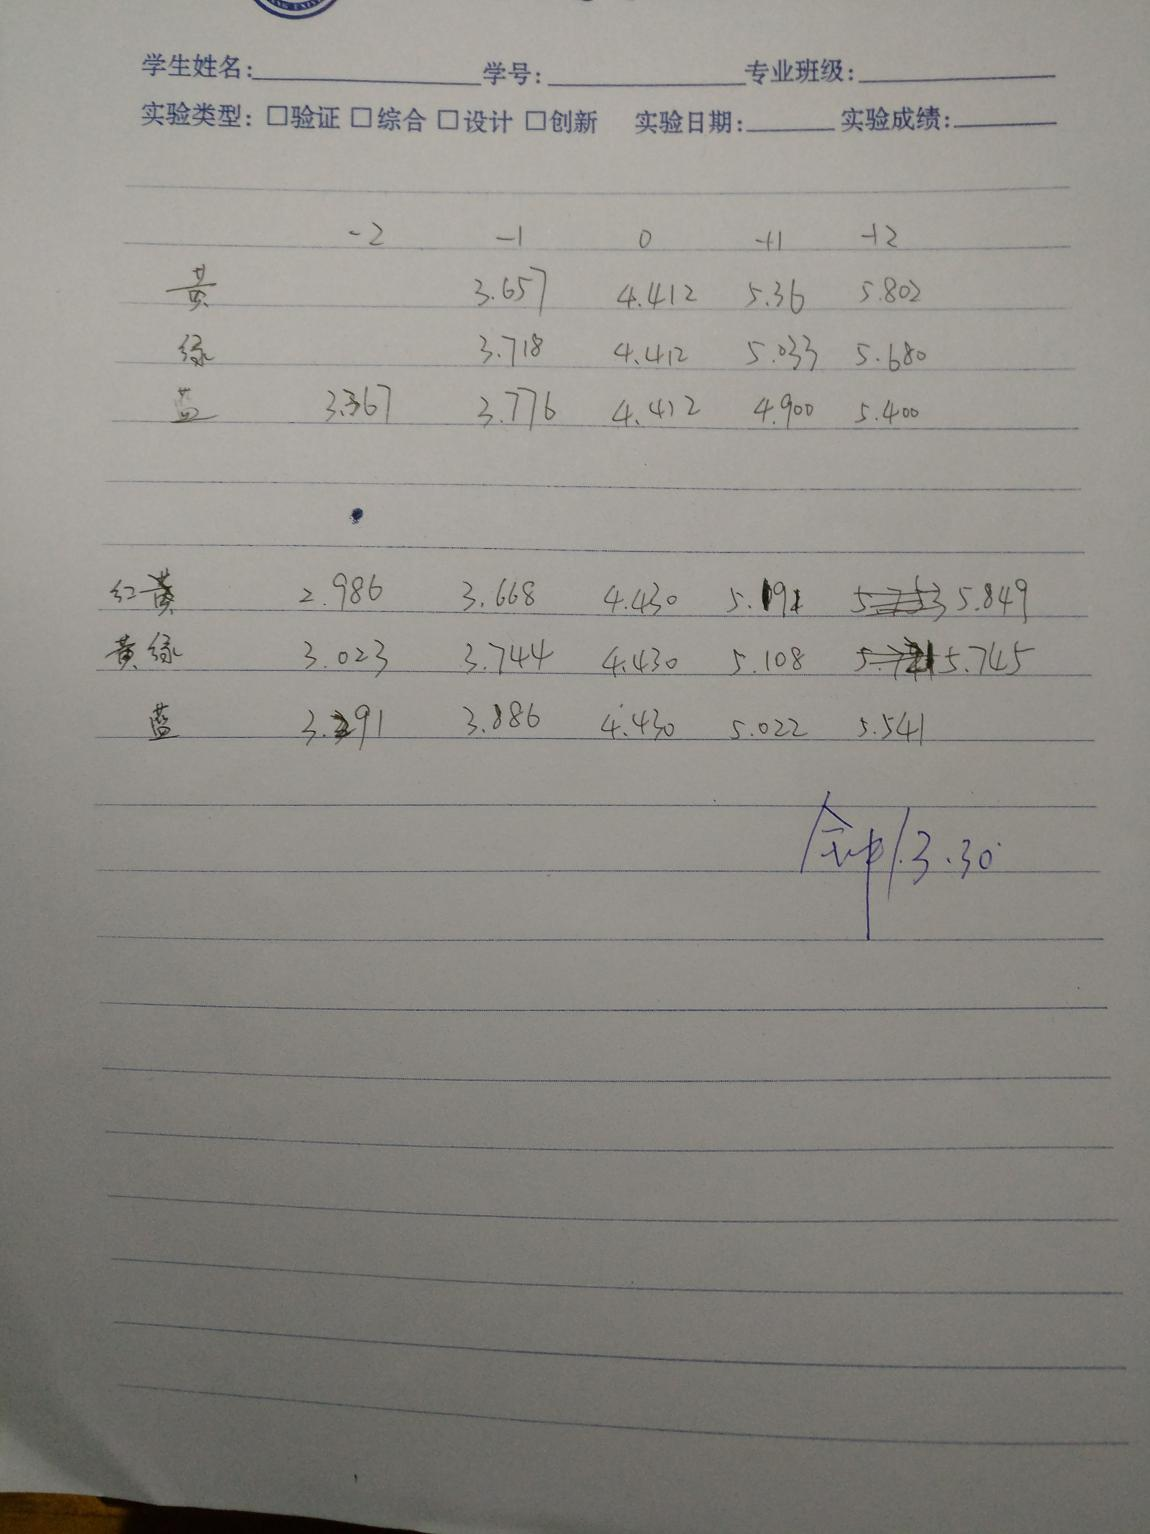 学生姓名: 学号: 专业班级:
实验类型: □验证 □综合 □设计 □创新 实验日期: 实验成绩:
-2 -1 0 +1 +2
黄 3.657 4.412 5.36 5.802
绿 3.718 4.412 5.033 5.680
蓝 3.367 3.776 4.412 4.900 5.400
红黄 2.986 3.668 4.430 5.191 5.849
黄绿 3.023 3.744 4.430 5.108 5.745
蓝 3.291 3.886 4.430 5.022 5.541
3.30